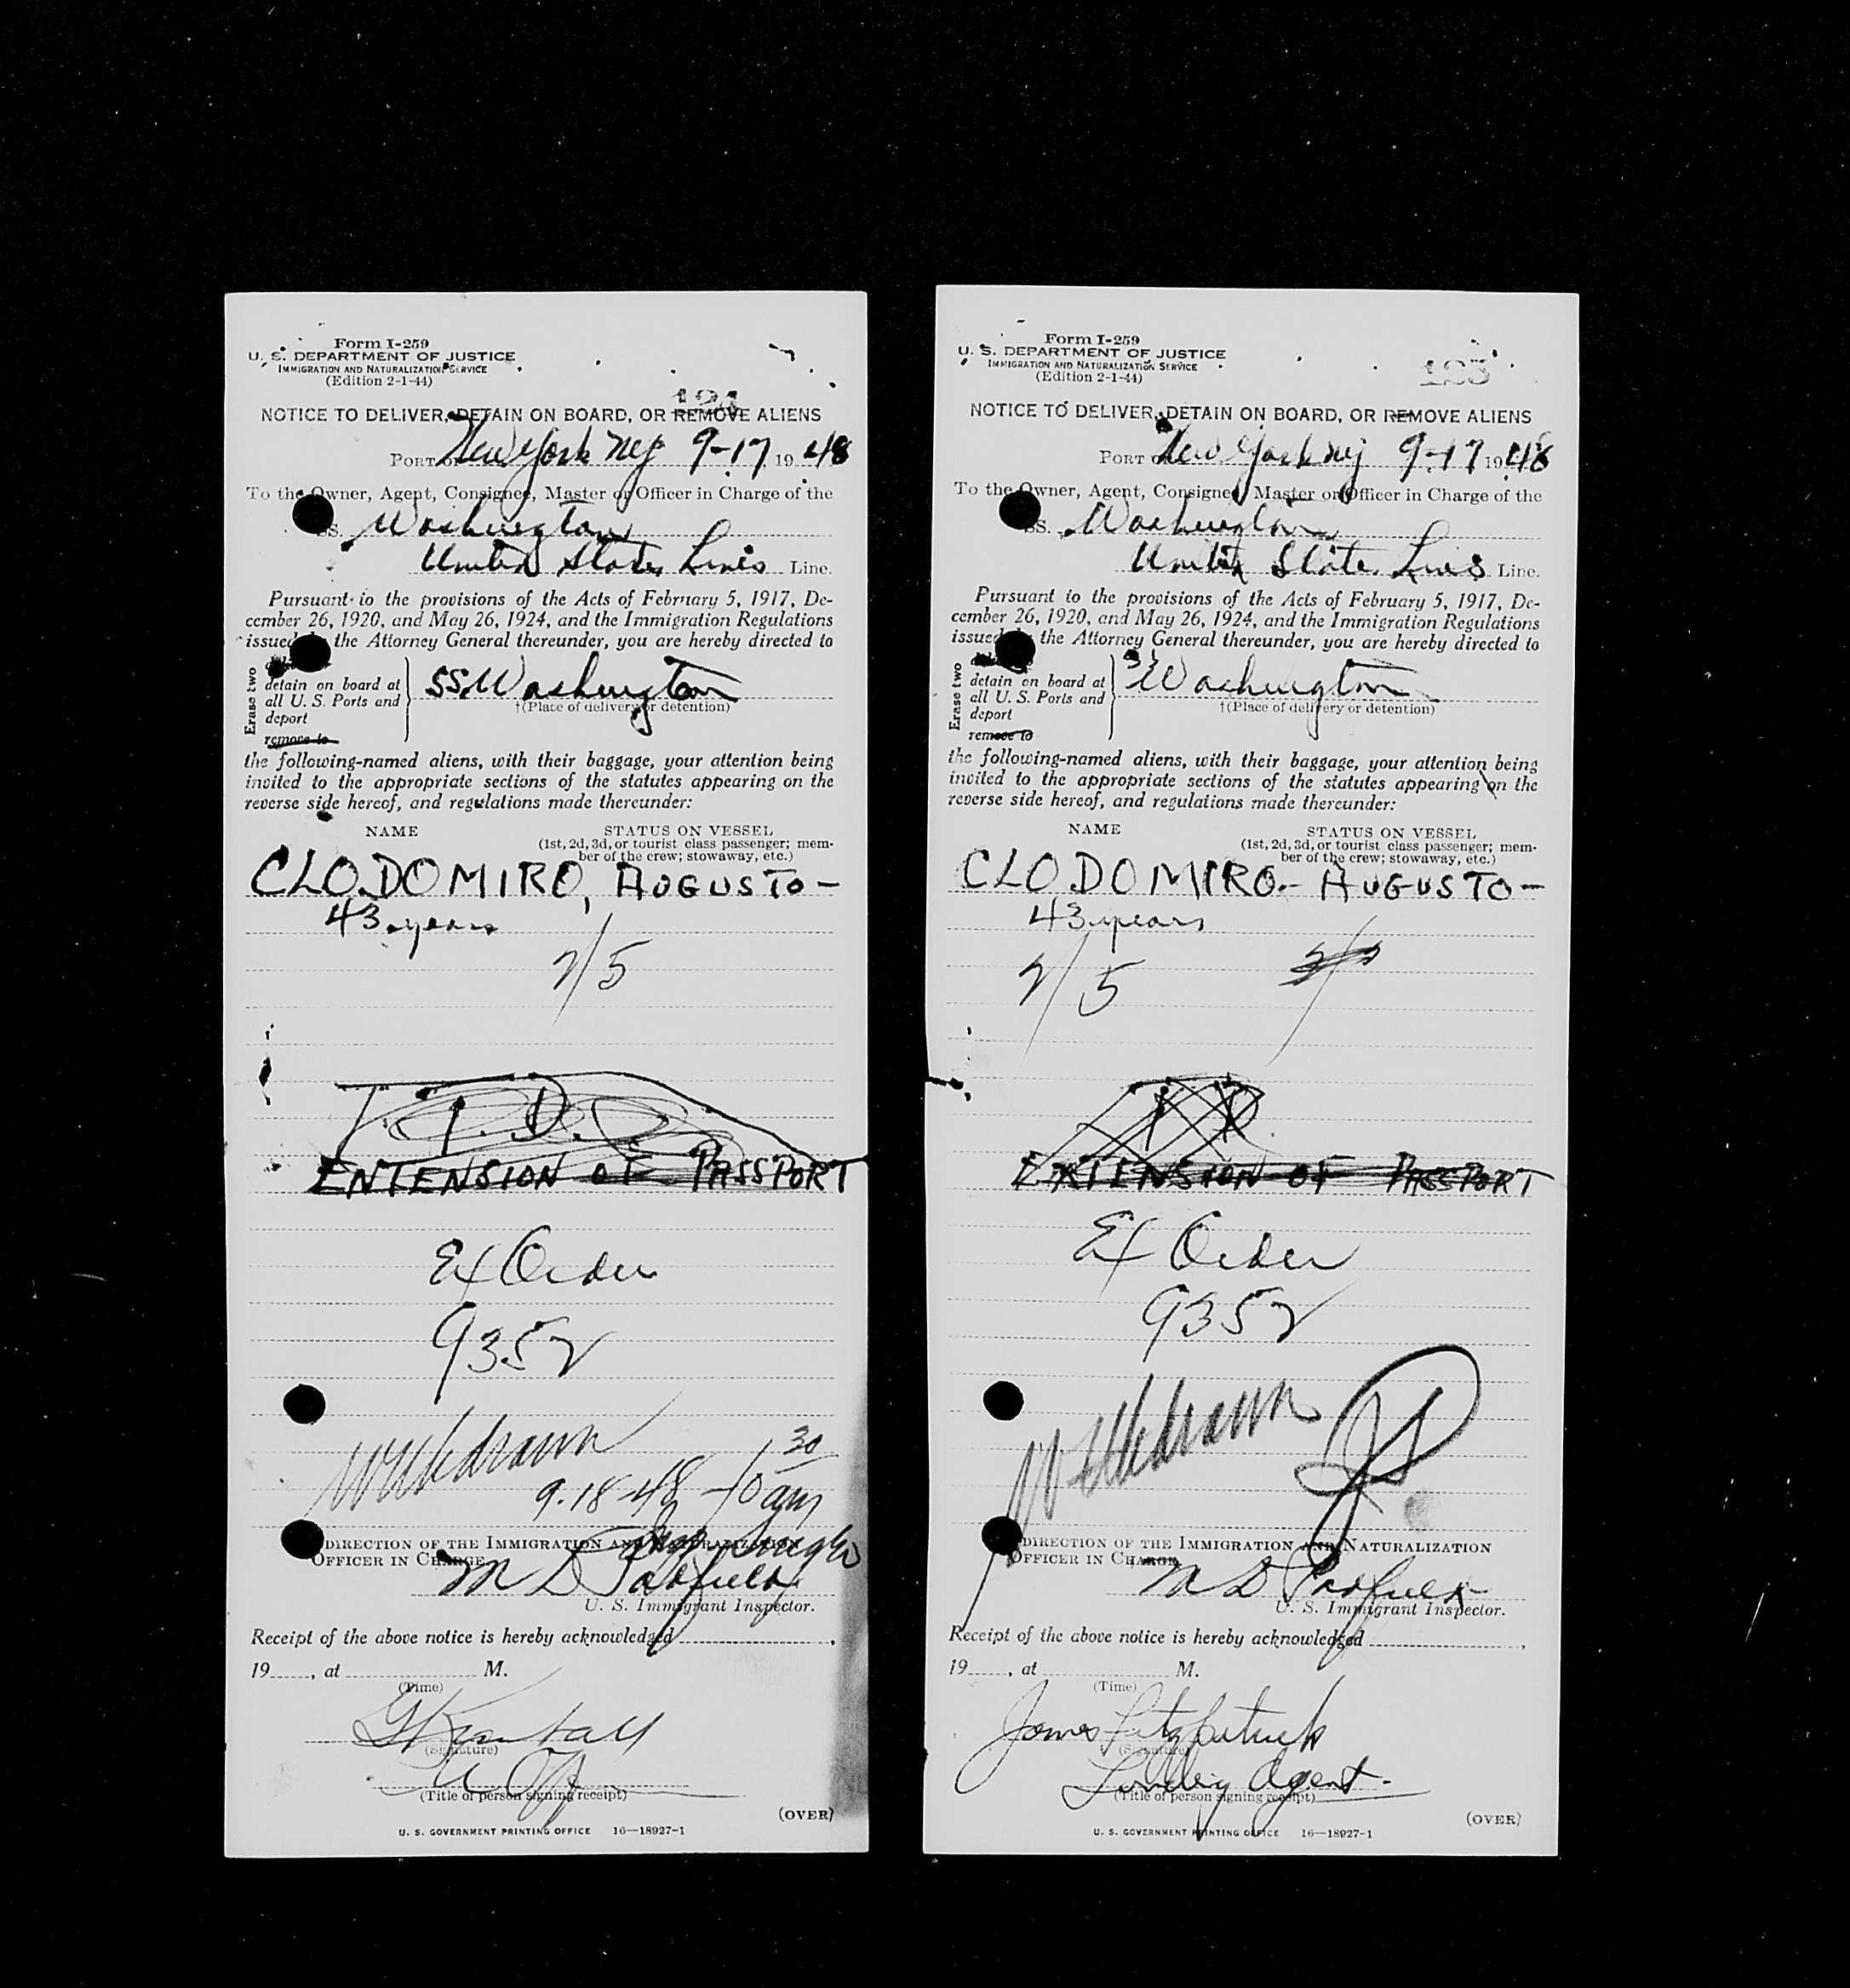 Form I-259
U. S. DEPARTMENT OF JUSTICE
IMMIGRATION AND NATURALIZATION SERVICE
(Edition 2-1-44)
124
NOTICE TO DELIVER, DETAIN ON BOARD, OR REMOVE ALIENS
PORT OF New York NY 9-17 1948
To the Owner, Agent, Consignee, Master or Officer in Charge of the
SS. Washington
United States Lines Line.
Pursuant to the provisions of the Acts of February 5, 1917, De-
cember 26, 1920, and May 26, 1924, and the Immigration Regulations
issued by the Attorney General thereunder, you are hereby directed to
Erase two
detain on board at
all U. S. Ports and
deport
remove to
SS. Washington
†(Place of delivery or detention)
the following-named aliens, with their baggage, your attention being
invited to the appropriate sections of the statutes appearing on the
reverse side hereof, and regulations made thereunder:
NAME STATUS ON VESSEL
(1st, 2d, 3d, or tourist class passenger; mem-
ber of the crew; stowaway, etc.)
CLODOMIRO, AUGUSTO -
43 years
2/5
T. I. D.
ENTENSION OF PASSPORT
Ex Order
9352
Withdrawn
9.18-48 - 10 30 am
DIRECTION OF THE IMMIGRATION AND NATURALIZATION
OFFICER IN CHARGE
M D Padfield
U. S. Immigrant Inspector.
Receipt of the above notice is hereby acknowledged
19 , at M.
(Time)
(Signature)
(Title of person signing receipt)
(OVER)
U. S. GOVERNMENT PRINTING OFFICE 16—18927-1
Form I-259
U. S. DEPARTMENT OF JUSTICE
IMMIGRATION AND NATURALIZATION SERVICE
(Edition 2-1-44)
123
NOTICE TO DELIVER, DETAIN ON BOARD, OR REMOVE ALIENS
PORT OF New York NY 9-17 1948
To the Owner, Agent, Consignee, Master or Officer in Charge of the
SS. Washington
United States Lines Line.
Pursuant to the provisions of the Acts of February 5, 1917, De-
cember 26, 1920, and May 26, 1924, and the Immigration Regulations
issued by the Attorney General thereunder, you are hereby directed to
Erase two
detain on board at
all U. S. Ports and
deport
remove to
SS Washington
†(Place of delivery or detention)
the following-named aliens, with their baggage, your attention being
invited to the appropriate sections of the statutes appearing on the
reverse side hereof, and regulations made thereunder:
NAME STATUS ON VESSEL
(1st, 2d, 3d, or tourist class passenger; mem-
ber of the crew; stowaway, etc.)
CLODOMIRO - AUGUSTO -
43 years
2/5
EXTENSION OF PASSPORT
Ex Order
9352
Withdrawn
DIRECTION OF THE IMMIGRATION AND NATURALIZATION
OFFICER IN CHARGE
M D Padfield
U. S. Immigrant Inspector.
Receipt of the above notice is hereby acknowledged
19 , at M.
(Time)
James Fitzpatrick
(Signature)
Landing Agent.
(Title of person signing receipt)
(OVER)
U. S. GOVERNMENT PRINTING OFFICE 16—18927-1